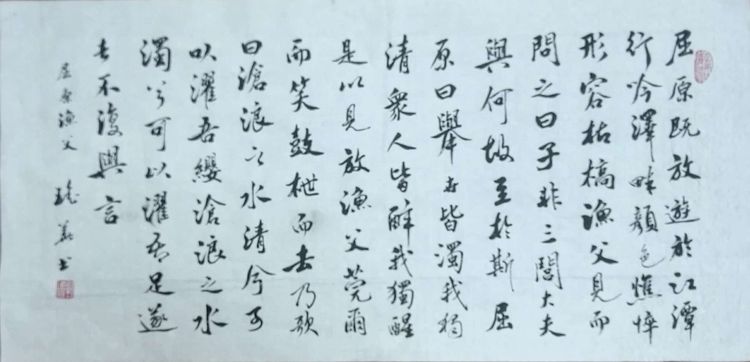 屈原既放遊於江潭
行吟澤畔顏色憔悴
形容枯槁漁父見而
問之曰子非三閭大夫
與何故至於斯屈
原曰舉世皆濁我獨
清眾人皆醉我獨醒
是以見放漁父莞爾
而笑鼓枻而去乃歌
曰滄浪之水清兮可
以濯吾纓滄浪之水
濁兮可以濯吾足遂
去不復與言
屈原漁父 書